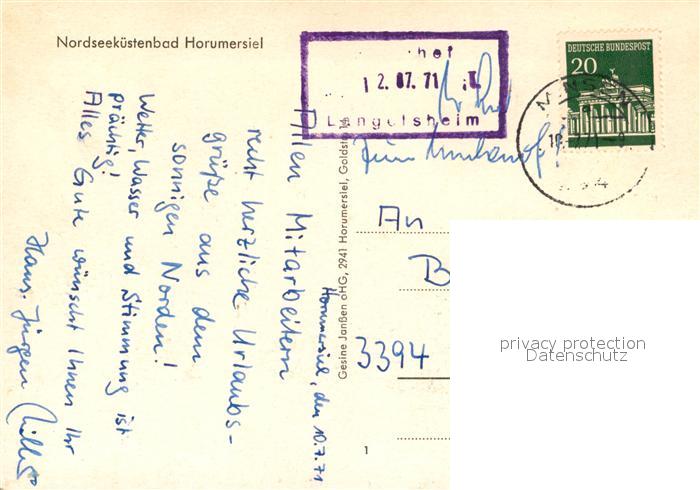 Nordseeküstenbad Horumersiel
hof
12. 07. 71
Langelsheim
DEUTSCHE BUNDESPOST
20
Horumersiel, den 10.7.71
Allen Mitarbeitern
recht herzliche Urlaubs-
grüße aus dem
sonnigen Norden!
Wetter, Wasser und Stimmung ist
prächtig!
Alles Gute wünscht Ihnen Ihr
Hans-Jürgen
Gesine Janßen oHG, 2941 Horumersiel, Goldstr.
zum
An
B
3394
1
privacy protection
Datenschutz